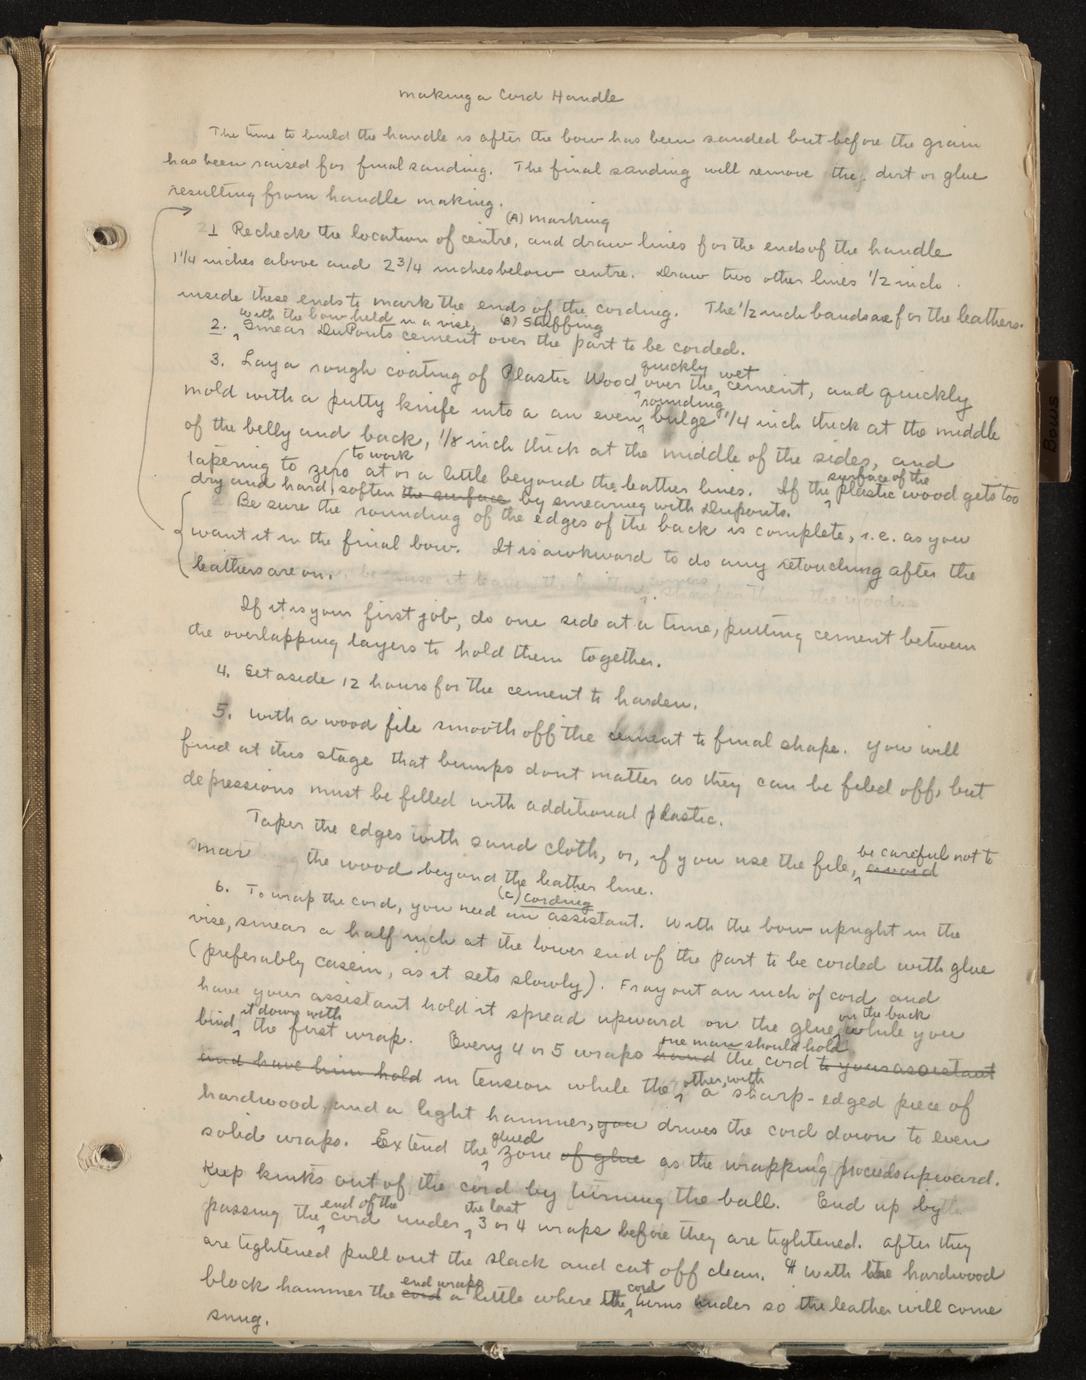 Making a Cord Handle
The time to build the handle is after the bow has been sanded but before the grain
has been raised for final sanding. The final sanding will remove the dirt or glue
resulting from handle making.
(A) Marking
1 Recheck the location of centre, and draw lines for the ends of the handle
1 1/4 inches above and 2 3/4 inches below centre. Draw two other lines 1/2 inch
inside these ends to mark the ends of the cording. The 1/2 inch bands are for the leathers.
with the bow held in a vise, (B) Stuffing
2. Smear DuPonts cement over the part to be corded.
quickly wet
3. Lay a rough coating of Plastic Wood over the cement, and quickly
rounding
mold with a putty knife into a an even bulge 1/4 inch thick at the middle
of the belly and back, 1/8 inch thick at the middle of the sides, and
to work surface of the
tapering to zero at or a little beyond the leather lines. If the plastic wood gets too
dry and hard, soften the surface by smearing with Duponts.
Be sure the rounding of the edges of the back is complete, i.e. as you
want it in the final bow. It is awkward to do any retouching after the
leathers are on. because it leaves the leather
If it is your first job, do one side at a time, putting cement between
the overlapping layers to hold them together.
4. Set aside 12 hours for the cement to harden.
5. With a wood file smooth off the cement to final shape. You will
find at this stage that bumps dont matter as they can be filed off, but
depressions must be filled with additional plastic.
Taper the edges with sand cloth, or, if you use the file, avoid
be careful not to
mar the wood beyond the leather line.
(C) Cording
6. To wrap the cord, you need an assistant. With the bow upright in the
vise, smear a half inch at the lower end of the part to be corded with glue
(preferably casein, as it sets slowly). Fray out an inch of cord and
have your assistant hold it spread upward on the glue, while you
it down with on the back
bind the first wrap. Every 4 or 5 wraps hand the cord to your assistant
one man should hold
and have him hold in tension while the a sharp-edged piece of
other, with
hardwood, and a light hammer, you drives the cord down to even
solid wraps. Extend the zone of glue as the wrapping proceeds upward.
glued
Keep kinks out of the cord by turning the ball. End up by
passing the cord under 3 or 4 wraps before they are tightened. After they
end of the the last
are tightened pull out the slack and cut off clean. With the hardwood
block hammer the cord a little where the turns under so the leather will come
end wraps cord
snug.
Bows